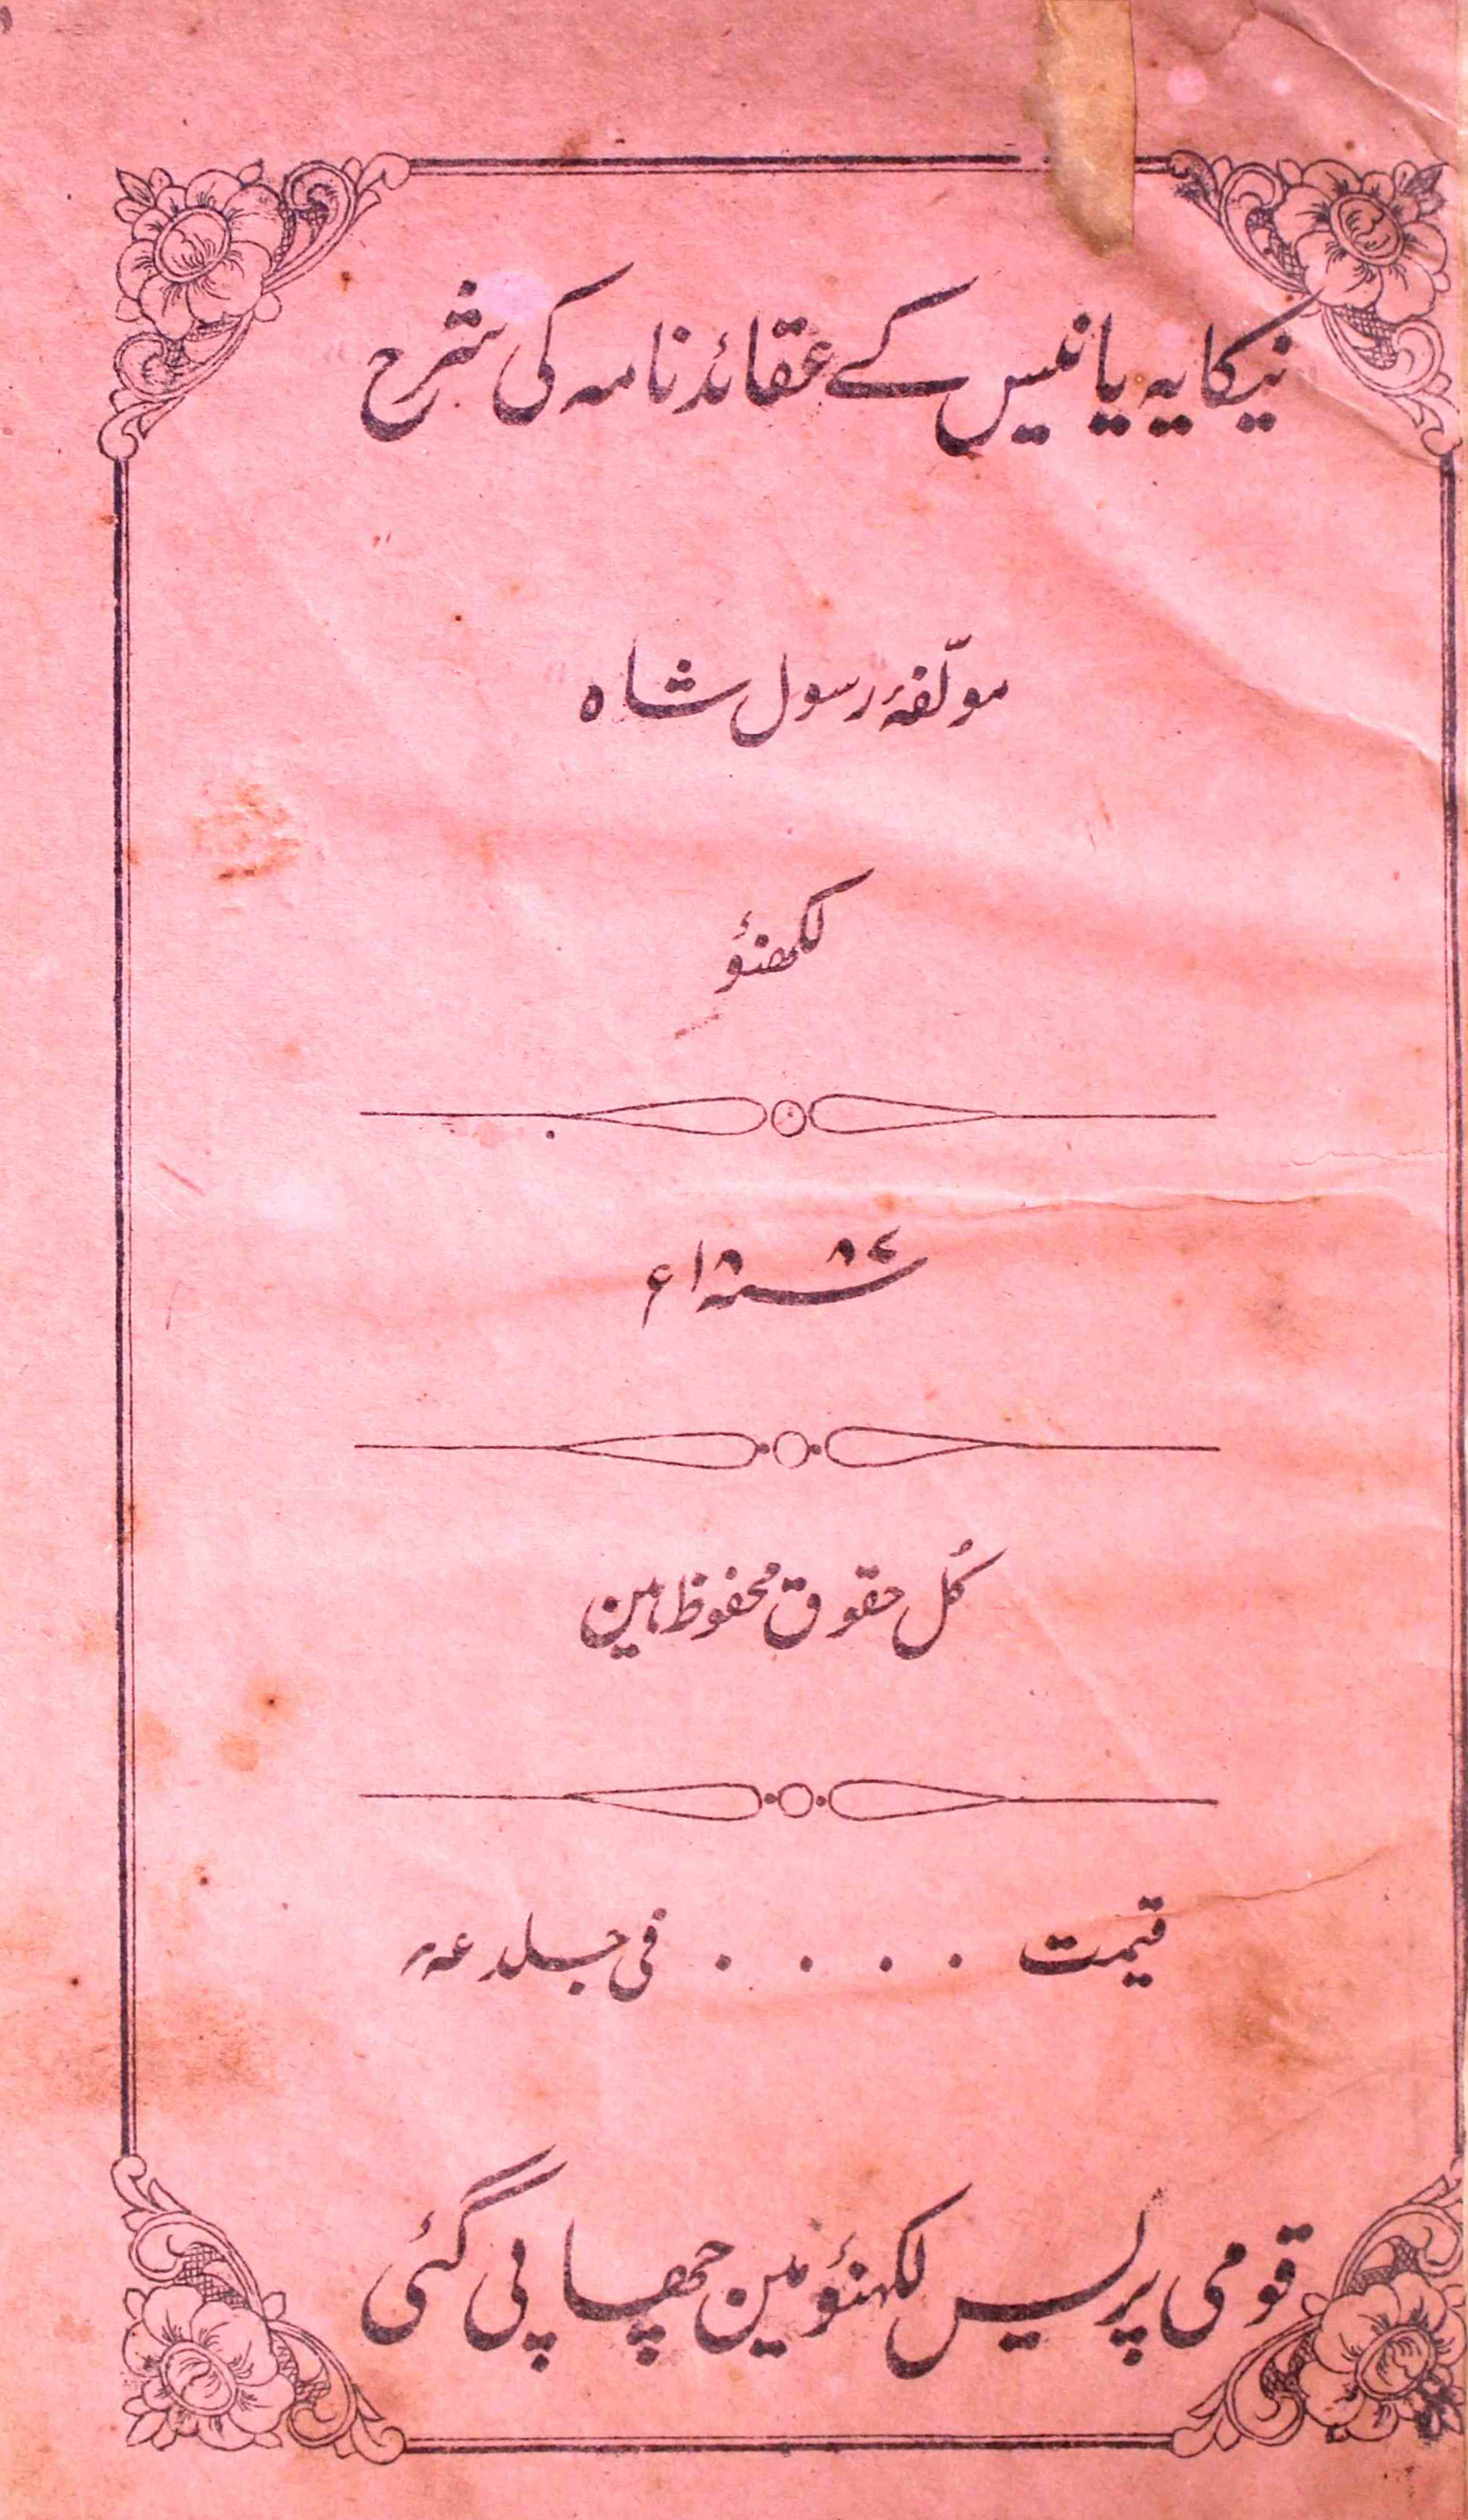 نیکایہ یا نیس کے عقائد نامہ کی شرح
مولّفۂ رسول شاہ
لکھنؤ
سنہ ۱۸۸۷ء
کُل حقوق محفوظ ہین
قیمت . . . . فی جلد عہ؍
قومی پریس لکھنؤ مین چھاپی گئی